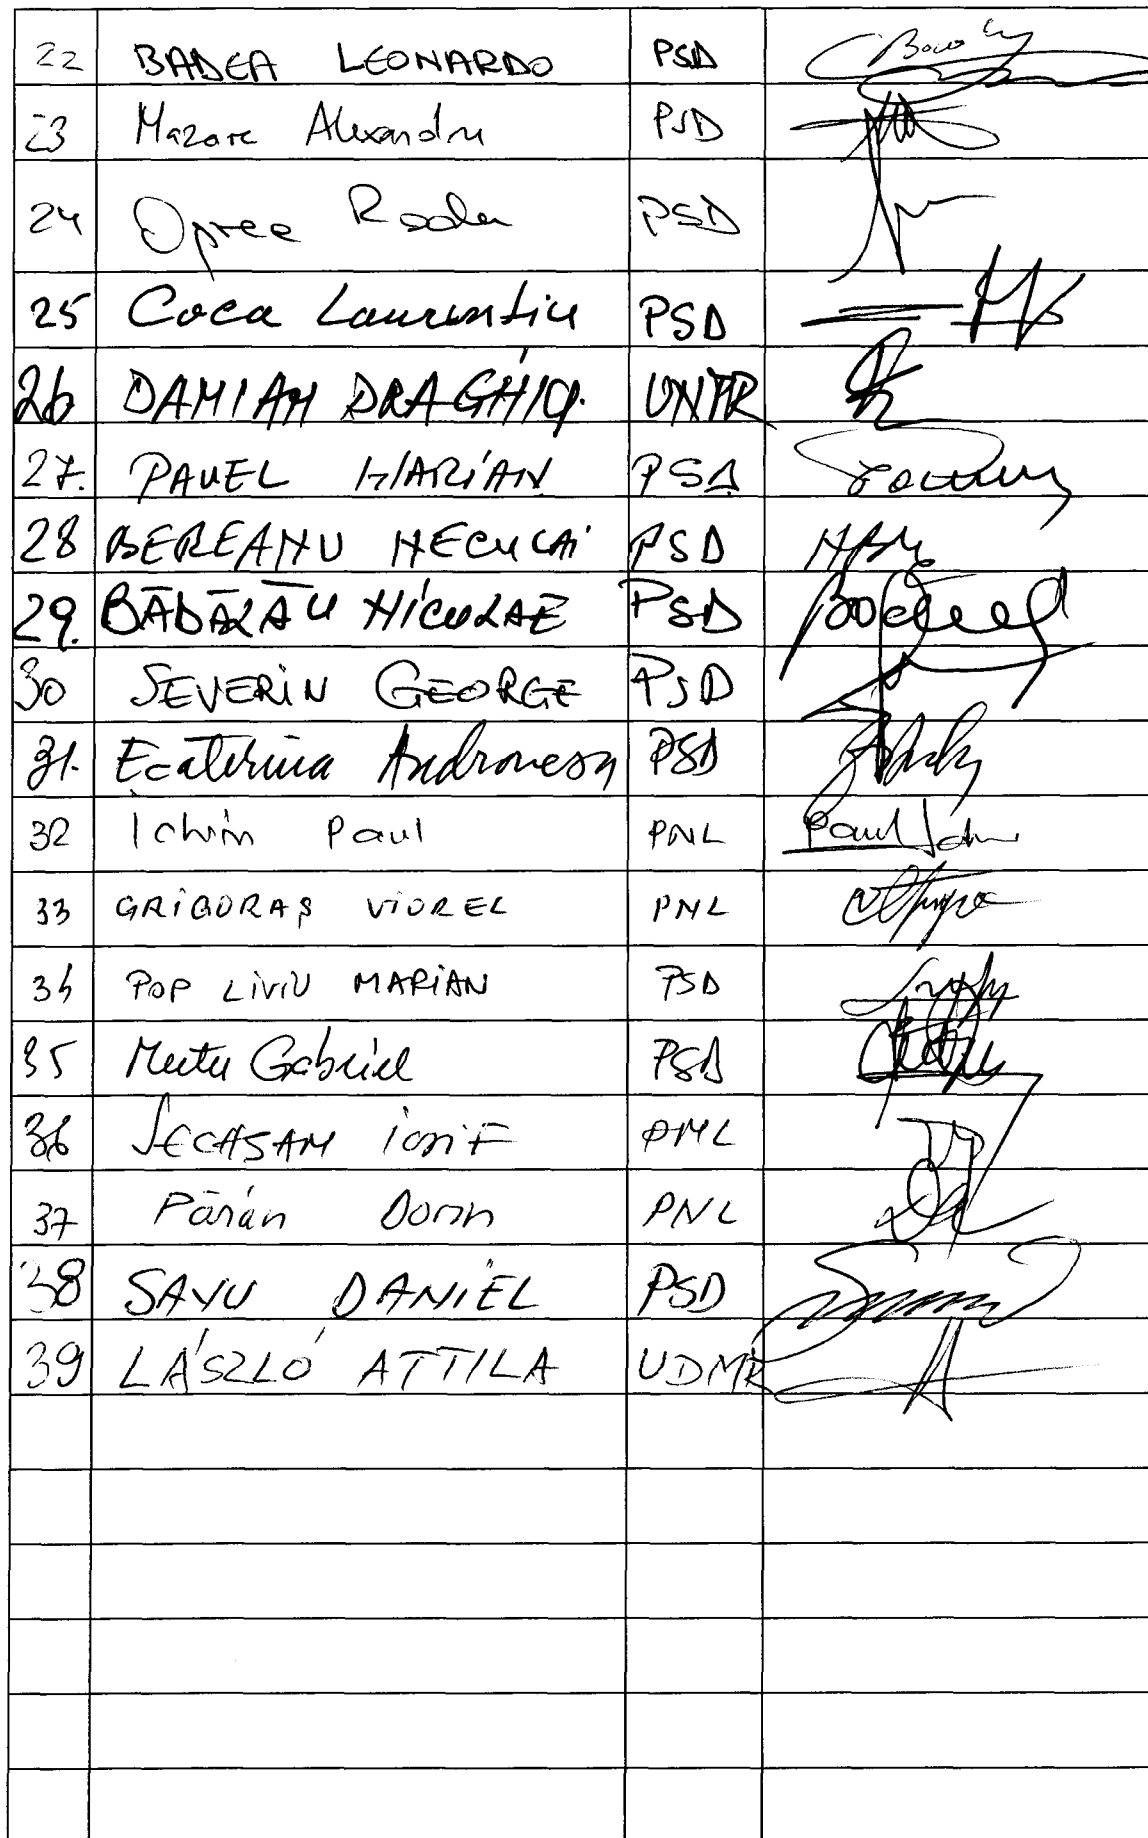 22 BADEA LEONARDO PSD
23 Mazare Alexandru PSD
24 Oprea Radu PSD
25 Coca Laurentiu PSD
26 DAMIAN DRAGHICI UNPR
27. PAVEL MARIAN PSD
28 BEREANU NECULAI PSD
29. BĂDĂLĂU NICULAE PSD
30 SEVERIN GEORGE PSD
31. Ecaterina Andronescu PSD
32 Ichim Paul PNL Paul Ichim
33 GRIGORAȘ VIOREL PNL
34 POP LIVIU MARIAN PSD
35 Mutu Gabriel PSD
36 SECĂȘAN IOSIF PNL
37 Părăn Dorin PNL
38 SAVU DANIEL PSD
39 LÁSZLÓ ATTILA UDMR